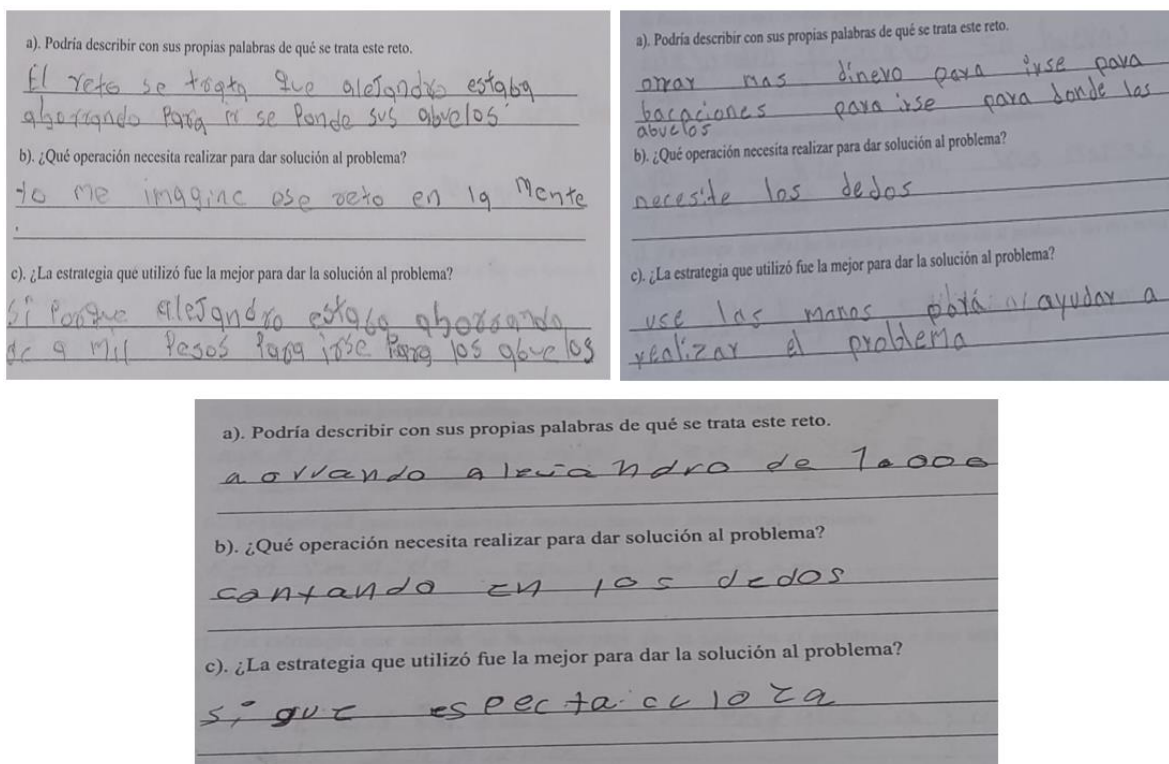 a). Podría describir con sus propias palabras de qué se trata este reto.
El reto se trata que alejandro estaba
ahorrando Para ir se Ponde sus abuelos
b). ¿Qué operación necesita realizar para dar solución al problema?
to me imagine ese reto en la Mente
c). ¿La estrategia que utilizó fue la mejor para dar la solución al problema?
Si Porque aleJandro estaba ahorrando
de a mil Pesos Para irse Para los abuelos
a). Podría describir con sus propias palabras de qué se trata este reto.
orrar mas dinero para irse para
bacaciones para irse para donde los
abuelos
b). ¿Qué operación necesita realizar para dar solución al problema?
necesite los dedos
c). ¿La estrategia que utilizó fue la mejor para dar la solución al problema?
use las manos ayudar a
realizar el problema
a). Podría describir con sus propias palabras de qué se trata este reto.
a orrando de 10000
b). ¿Qué operación necesita realizar para dar solución al problema?
contando en los dedos
c). ¿La estrategia que utilizó fue la mejor para dar la solución al problema?
si gue